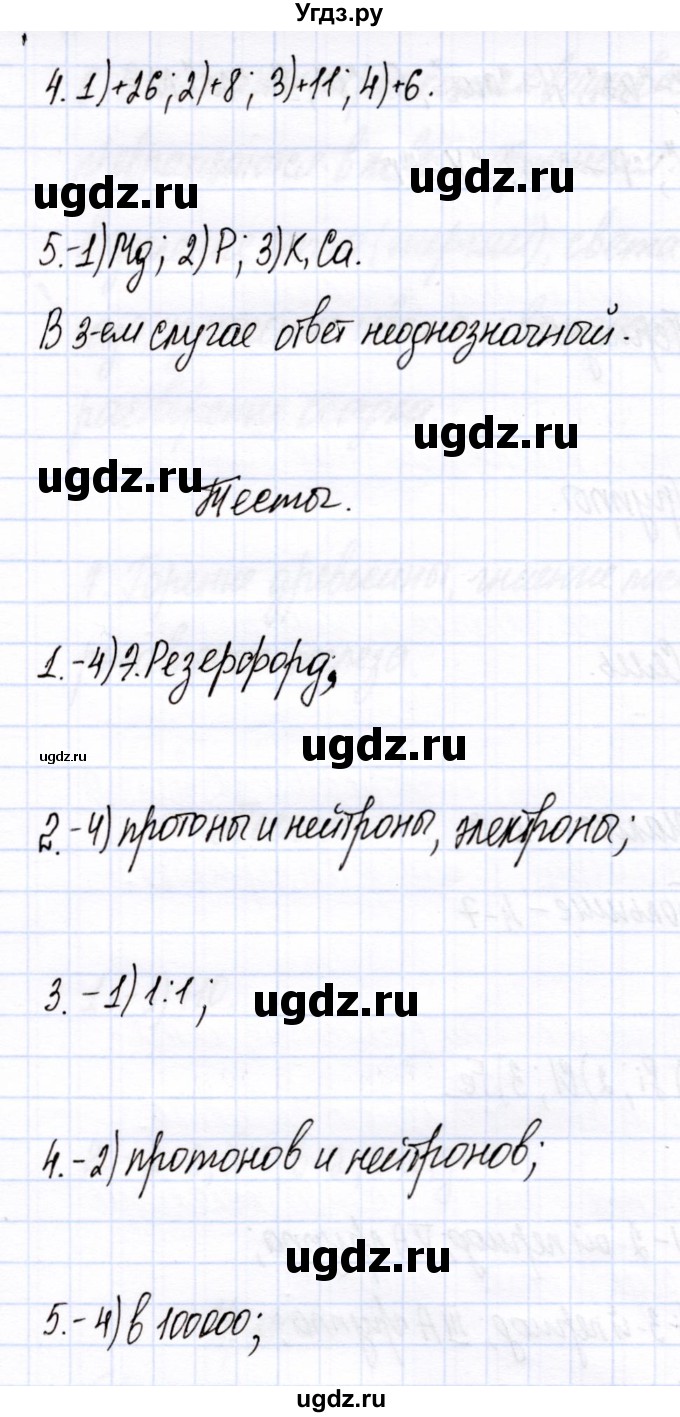 Угдз.ру
4. 1)+26; 2)+8; 3)+11; 4)+6.
ugdz.ru
ugdz.ru
5.-1)Mg; 2)P; 3)K,Ca.
В 3-ем случае ответ неоднозначный.
ugdz.ru
ugdz.ru
Тесты.
1.-4)Э.Резерфорд;
ugdz.ru
ugdz.ru
2.-4)протоны и нейтроны, электроны;
3.-1)1:1;
ugdz.ru
4.-2)протонов и нейтронов;
ugdz.ru
5.-4)в 100000;
ugdz.ru